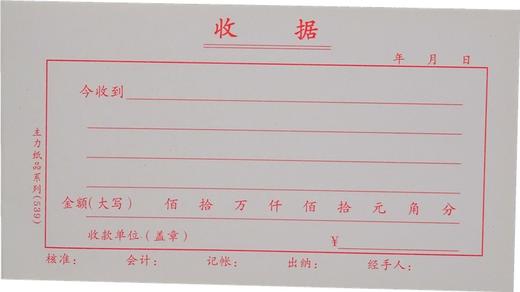 收 据
年 月 日
今收到
金额(大写) 佰 拾 万 仟 佰 拾 元 角 分
收款单位(盖章) ¥
核准: 会计: 记帐: 出纳: 经手人:
主力纸品系列(539)